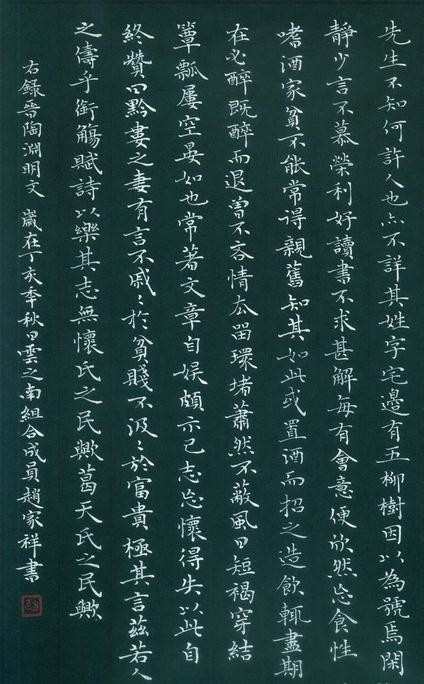 先生不知何許人也亦不詳其姓字宅邊有五柳樹因以為號焉閑
靜少言不慕榮利好讀書不求甚解每有會意便欣然忘食性
嗜酒家貧不能常得親舊知其如此或置酒而招之造飲輒盡期
在必醉既醉而退曾不吝情去留環堵蕭然不蔽風日短褐穿結
簞瓢屢空晏如也常著文章自娛頗示己志忘懷得失以此自
終贊曰黔婁之妻有言不戚〻於貧賤不汲〻於富貴極其言茲若人
之儔乎銜觴賦詩以樂其志無懷氏之民歟葛天氏之民歟
右錄晉陶淵明文 歲在丁亥季秋日雲之南組合成員趙家祥書